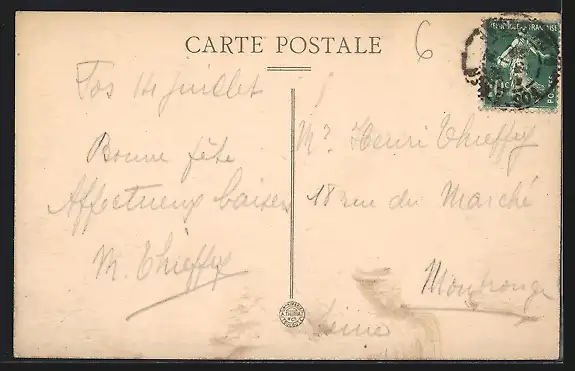 CARTE POSTALE
6
Fos 14 Juillet
Bonne fête
Affectueux baisers
M. Thieffry
Mr Henri Thieffry
18 rue du Marché
Montrouge
Seine